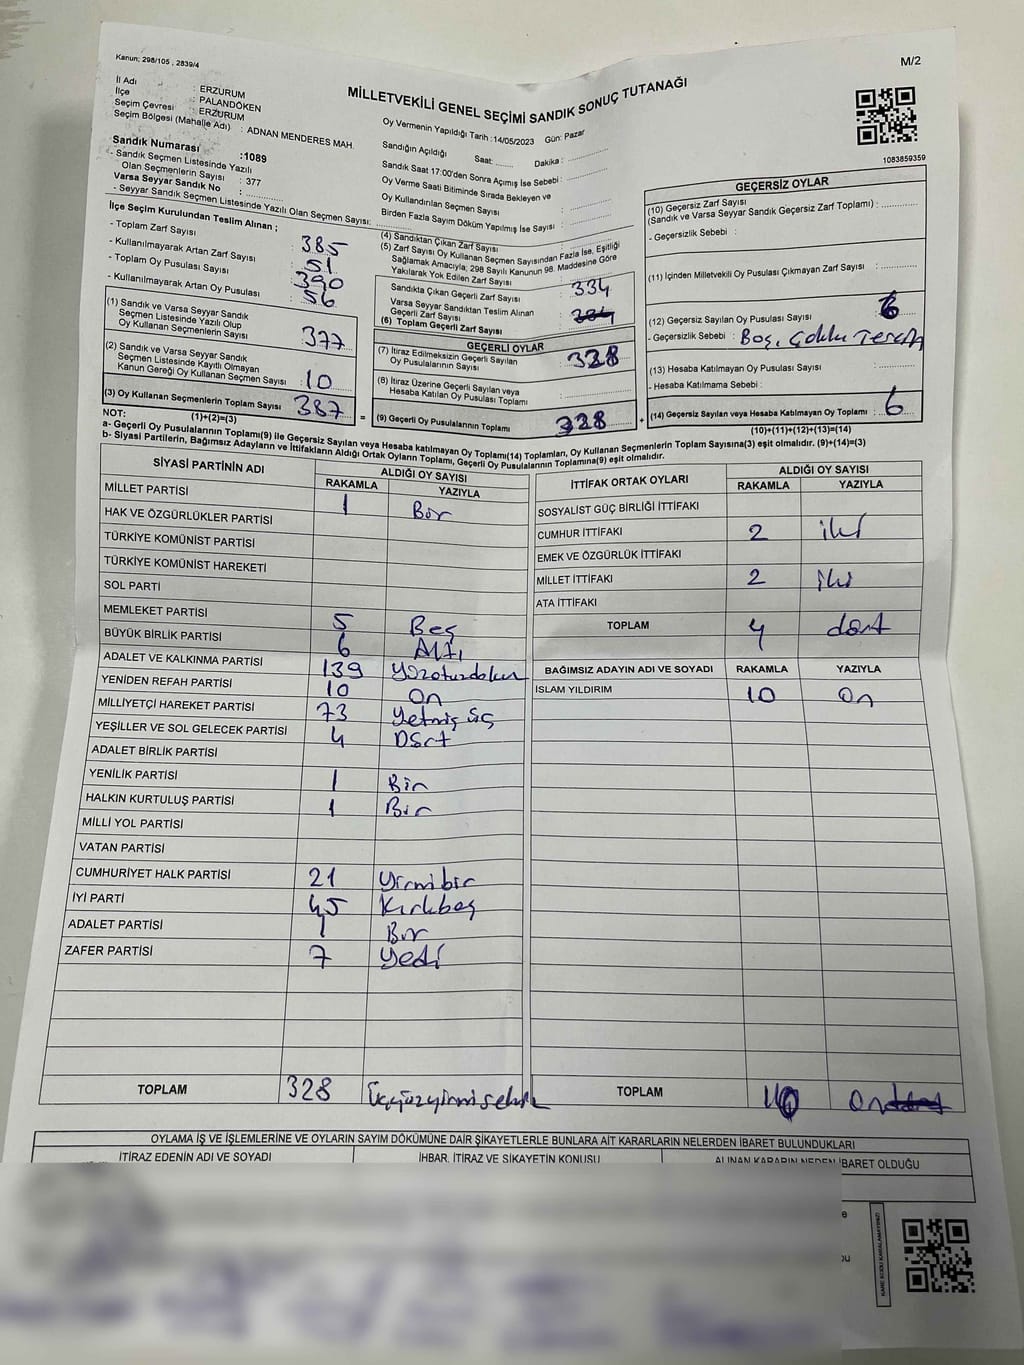 Kanun; 298/105 , 2839/4
M/2
MİLLETVEKİLİ GENEL SEÇİMİ SANDIK SONUÇ TUTANAĞI
İl Adı : ERZURUM
İlçe : PALANDÖKEN
Seçim Çevresi : ERZURUM
Seçim Bölgesi (Mahalle Adı) : ADNAN MENDERES MAH.
Sandık Numarası :1089
- Sandık Seçmen Listesinde Yazılı
Olan Seçmenlerin Sayısı : 377
Varsa Seyyar Sandık No :
- Seyyar Sandık Seçmen Listesinde Yazılı Olan Seçmen Sayısı:
İlçe Seçim Kurulundan Teslim Alınan ;
- Toplam Zarf Sayısı : 385
- Kullanılmayarak Artan Zarf Sayısı : 51
- Toplam Oy Pusulası Sayısı : 390
- Kullanılmayarak Artan Oy Pusulası : 56
(1) Sandık ve Varsa Seyyar Sandık
Seçmen Listesinde Yazılı Olup
Oy Kullanan Seçmenlerin Sayısı : 377
(2) Sandık ve Varsa Seyyar Sandık
Seçmen Listesinde Kayıtlı Olmayan
Kanun Gereği Oy Kullanan Seçmen Sayısı : 10
(3) Oy Kullanan Seçmenlerin Toplam Sayısı : 387
(1)+(2)=(3)
Oy Vermenin Yapıldığı Tarih :14/05/2023 Gün: Pazar
Sandığın Açıldığı Saat: Dakika :
Sandık Saat 17:00'den Sonra Açımış İse Sebebi :
Oy Verme Saati Bitiminde Sırada Bekleyen ve
Oy Kullandırılan Seçmen Sayısı :
Birden Fazla Sayım Döküm Yapılmış İse Sayısı :
(4) Sandıktan Çıkan Zarf Sayısı :
(5) Zarf Sayısı Oy Kullanan Seçmen Sayısından Fazla İse, Eşitliği
Sağlamak Amacıyla; 298 Sayılı Kanunun 98. Maddesine Göre
Yakılarak Yok Edilen Zarf Sayısı :
Sandıkta Çıkan Geçerli Zarf Sayısı : 334
Varsa Seyyar Sandıktan Teslim Alınan
Geçerli Zarf Sayısı :
(6) Toplam Geçerli Zarf Sayısı
GEÇERLİ OYLAR
(7) İtiraz Edilmeksizin Geçerli Sayılan
Oy Pusulalarının Sayısı : 328
(8) İtiraz Üzerine Geçerli Sayılan veya
Hesaba Katılan Oy Pusulası Toplamı
= (9) Geçerli Oy Pusulalarının Toplamı 328 +
1083859359
GEÇERSİZ OYLAR
(10) Geçersiz Zarf Sayısı
(Sandık ve Varsa Seyyar Sandık Geçersiz Zarf Toplamı) :
- Geçersizlik Sebebi :
(11) İçinden Milletvekili Oy Pusulası Çıkmayan Zarf Sayısı :
(12) Geçersiz Sayılan Oy Pusulası Sayısı : 6
- Geçersizlik Sebebi : Boş, Çoklu Tercih
(13) Hesaba Katılmayan Oy Pusulası Sayısı :
- Hesaba Katılmama Sebebi :
(14) Geçersiz Sayılan veya Hesaba Katılmayan Oy Toplamı : 6
(10)+(11)+(12)+(13)=(14)
NOT:
a- Geçerli Oy Pusulalarının Toplamı(9) ile Geçersiz Sayılan veya Hesaba katılmayan Oy Toplamı(14) Toplamları, Oy Kullanan Seçmenlerin Toplam Sayısına(3) eşit olmalıdır. (9)+(14)=(3)
b- Siyasi Partilerin, Bağımsız Adayların ve İttifakların Aldığı Ortak Oyların Toplamı, Geçerli Oy Pusulalarının Toplamına(9) eşit olmalıdır.
SİYASİ PARTİNİN ADI ALDIĞI OY SAYISI
RAKAMLA YAZIYLA
MİLLET PARTİSİ 1 Bir
HAK VE ÖZGÜRLÜKLER PARTİSİ
TÜRKİYE KOMÜNİST PARTİSİ
TÜRKİYE KOMÜNİST HAREKETİ
SOL PARTİ
MEMLEKET PARTİSİ 5 Beş
BÜYÜK BİRLİK PARTİSİ 6 Altı
ADALET VE KALKINMA PARTİSİ 139 Yüzotuzdokuz
YENİDEN REFAH PARTİSİ 10 On
MİLLİYETÇİ HAREKET PARTİSİ 73 Yetmiş üç
YEŞİLLER VE SOL GELECEK PARTİSİ 4 Dört
ADALET BİRLİK PARTİSİ
YENİLİK PARTİSİ 1 Bir
HALKIN KURTULUŞ PARTİSİ 1 Bir
MİLLİ YOL PARTİSİ
VATAN PARTİSİ
CUMHURİYET HALK PARTİSİ 21 Yirmibir
İYİ PARTİ 45 Kırkbeş
ADALET PARTİSİ 1 Bir
ZAFER PARTİSİ 7 Yedi
TOPLAM 328 Üçyüzyirmisekiz
İTTİFAK ORTAK OYLARI ALDIĞI OY SAYISI
RAKAMLA YAZIYLA
SOSYALİST GÜÇ BİRLİĞİ İTTİFAKI
CUMHUR İTTİFAKI 2 iki
EMEK VE ÖZGÜRLÜK İTTİFAKI
MİLLET İTTİFAKI 2 iki
ATA İTTİFAKI
TOPLAM 4 dört
BAĞIMSIZ ADAYIN ADI VE SOYADI RAKAMLA YAZIYLA
İSLAM YILDIRIM 10 On
TOPLAM 10 On
OYLAMA İŞ VE İŞLEMLERİNE VE OYLARIN SAYIM DÖKÜMÜNE DAİR ŞİKAYETLERLE BUNLARA AİT KARARLARIN NELERDEN İBARET BULUNDUKLARI
İTİRAZ EDENİN ADI VE SOYADI İHBAR, İTİRAZ VE ŞİKAYETİN KONUSU ALINAN KARARIN NEDEN İBARET OLDUĞU
KARE KODU KARALAMAYINIZ!